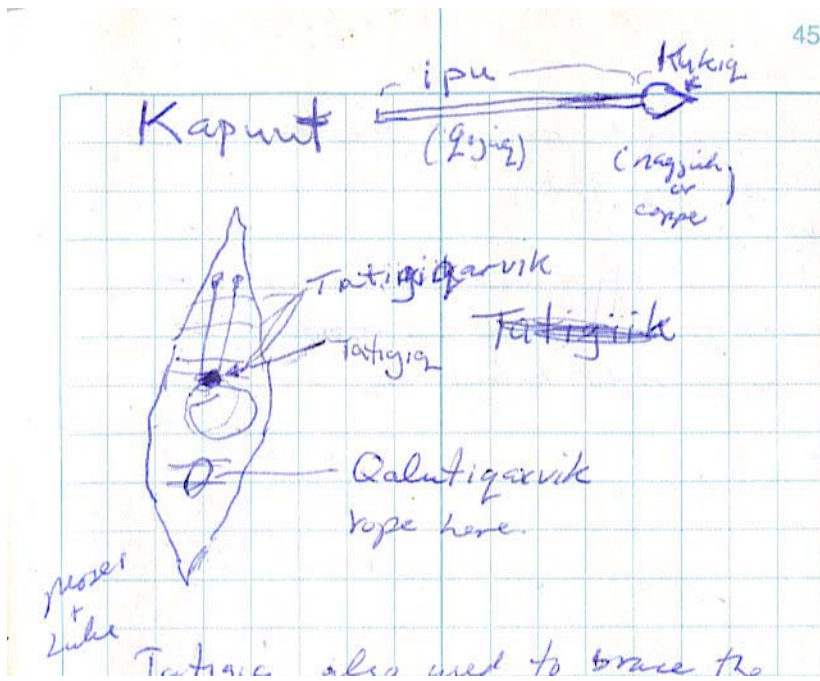 45
ipu Kukiq
Kapuut
(Qijuq)
(nagjuk
or
coppe)
Tatigiqarvik
Tatigiik
Tatigiq
Qalutiqarvik
rope here.
Moses
+
Luke
Tatigiq also used to brace the